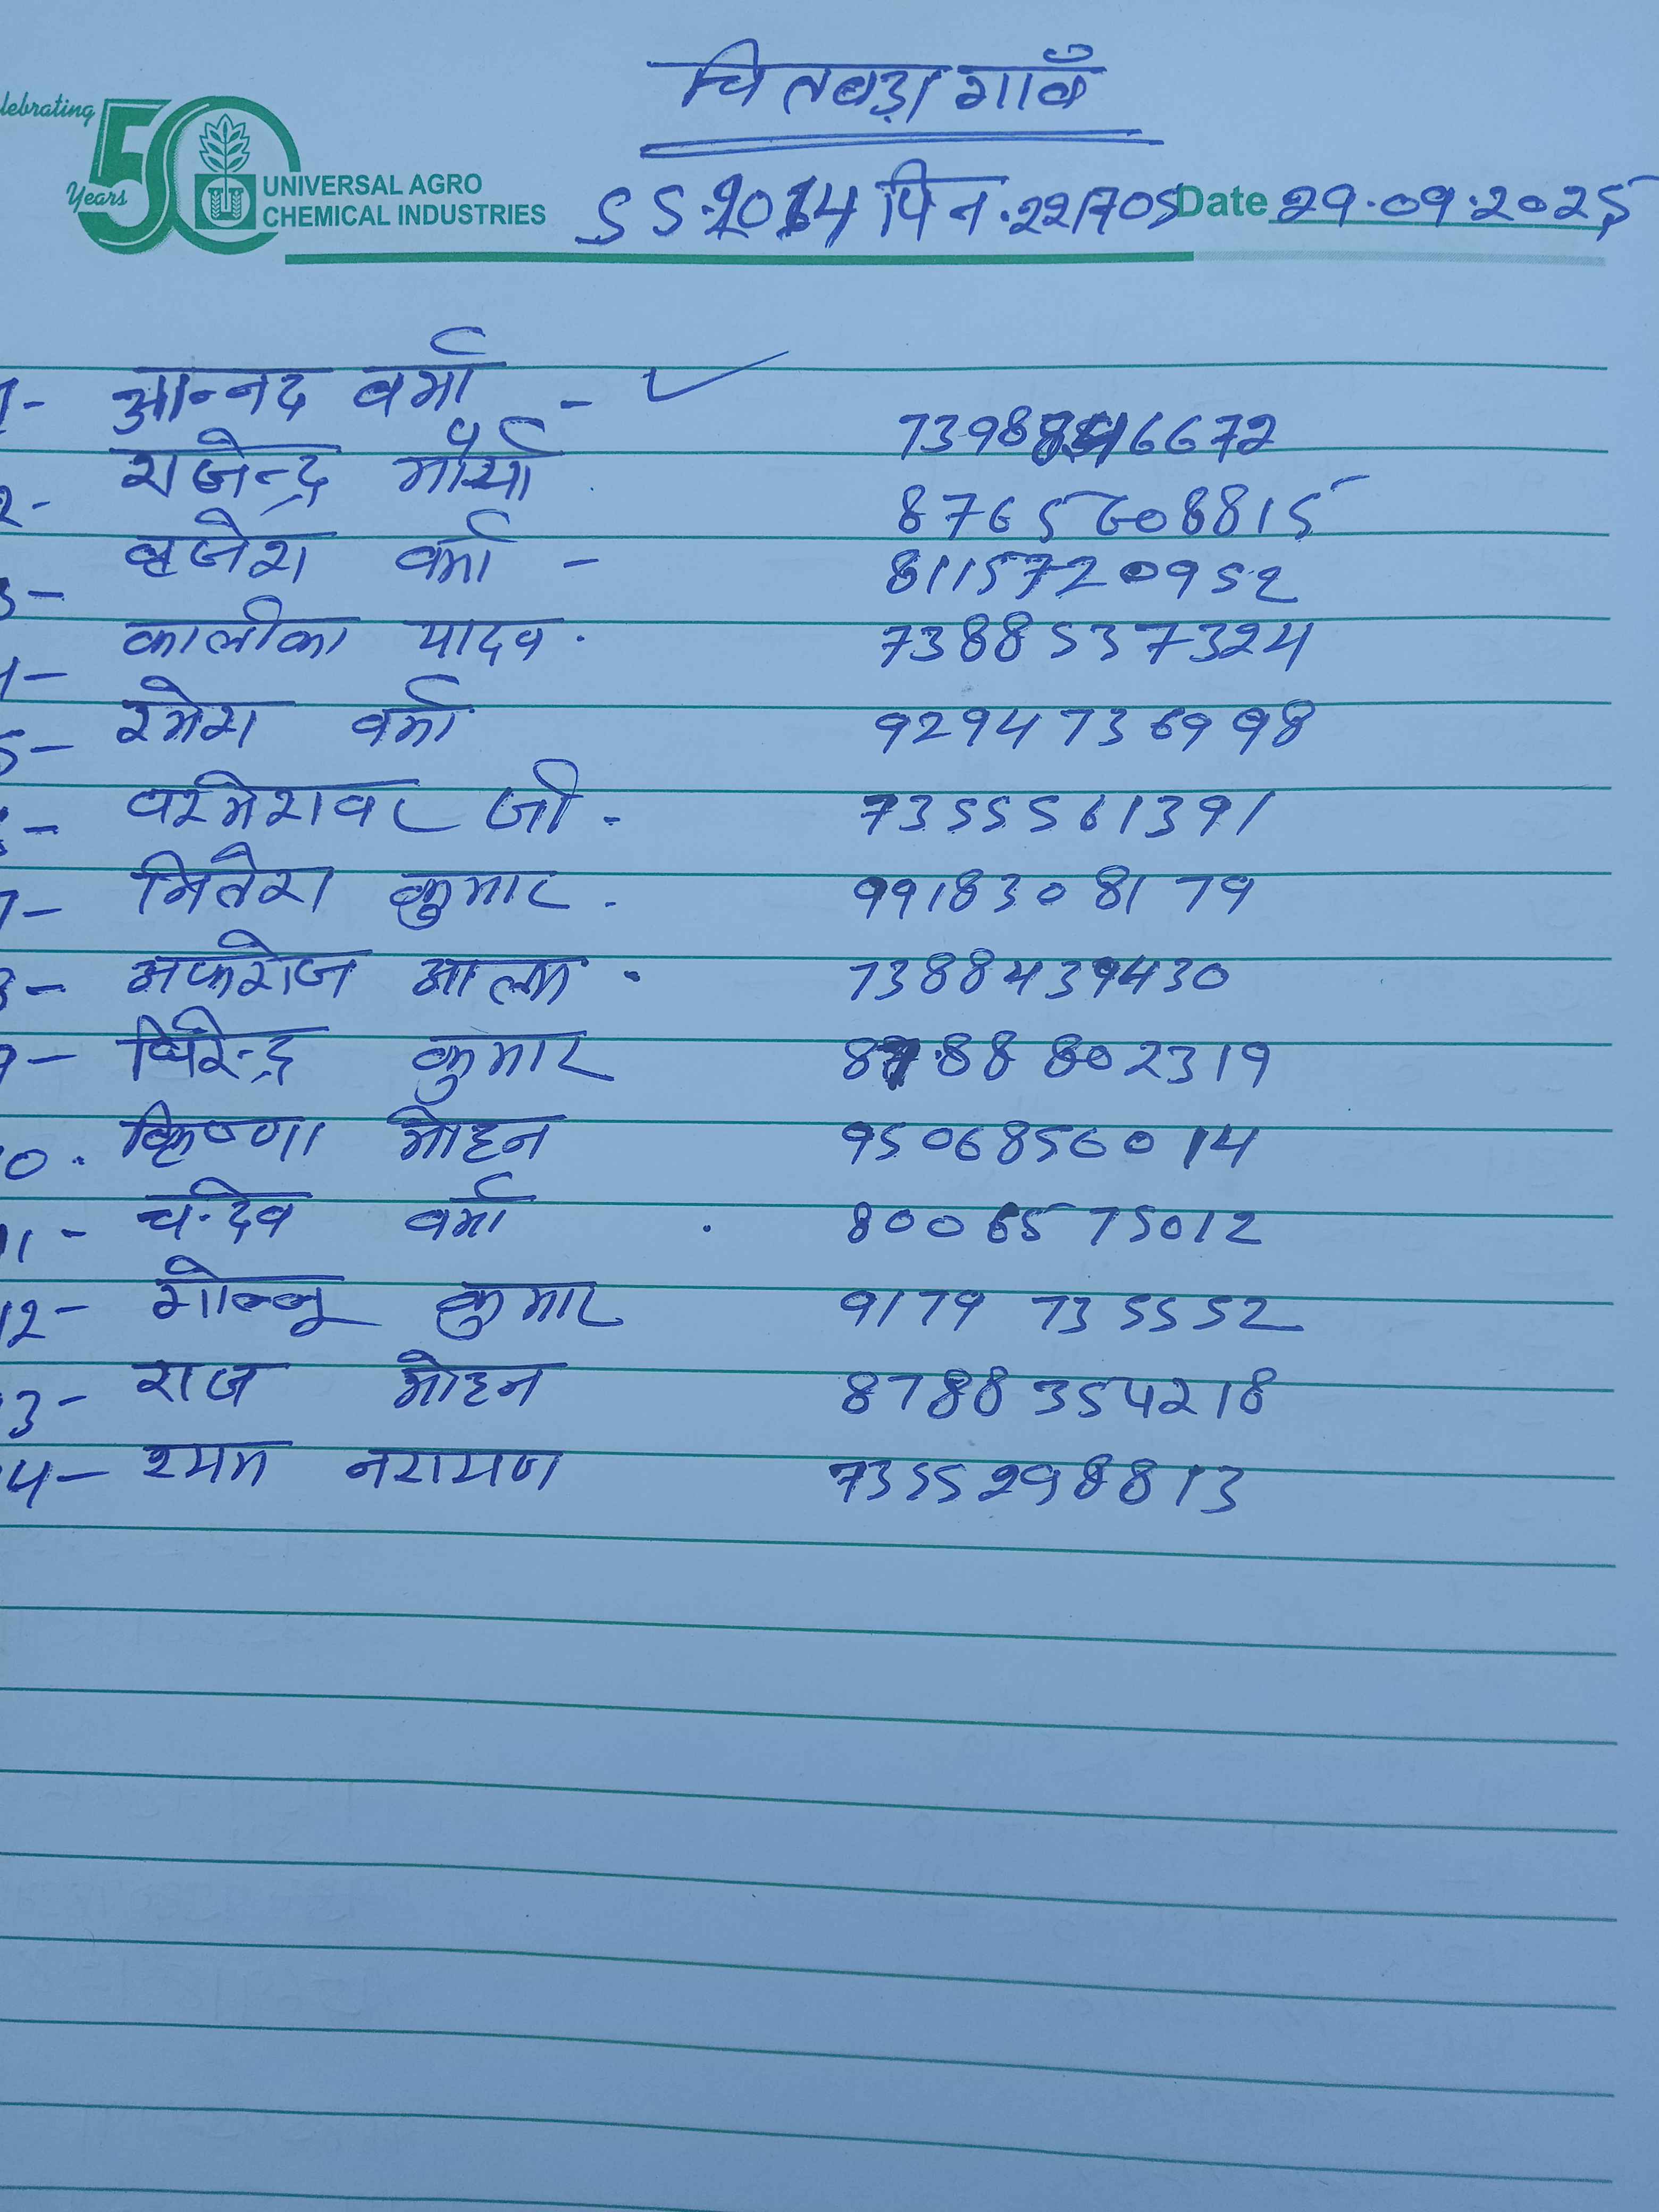 चितबड़ा गाँव
Celebrating 50 Years
UNIVERSAL AGRO
CHEMICAL INDUSTRIES
SS.2014 पिन.221705 Date 29.09.2025
१- आन्नद वर्मा - ✓ 7398 6672
२- राजेन्द्र मौर्या 8765608815
3- बृजेश वर्मा - 8115720952
4- कालीका यादव. 7388537324
5- रमेश वर्मा 9294736998
परमेशवर जी - 7355561391
7- मितेश कुमार. 9918308179
8- अफरोज आलम. 7388439430
9- विरेन्द्र कुमार 8788802319
10. क्रिष्णा मोहन 9506856014
11- चन्देव वर्मा . 8006575012
12- गोल्लू कुमार 9179735552
13- राज मोहन 8788354218
14- श्याम नरायण 7355298813